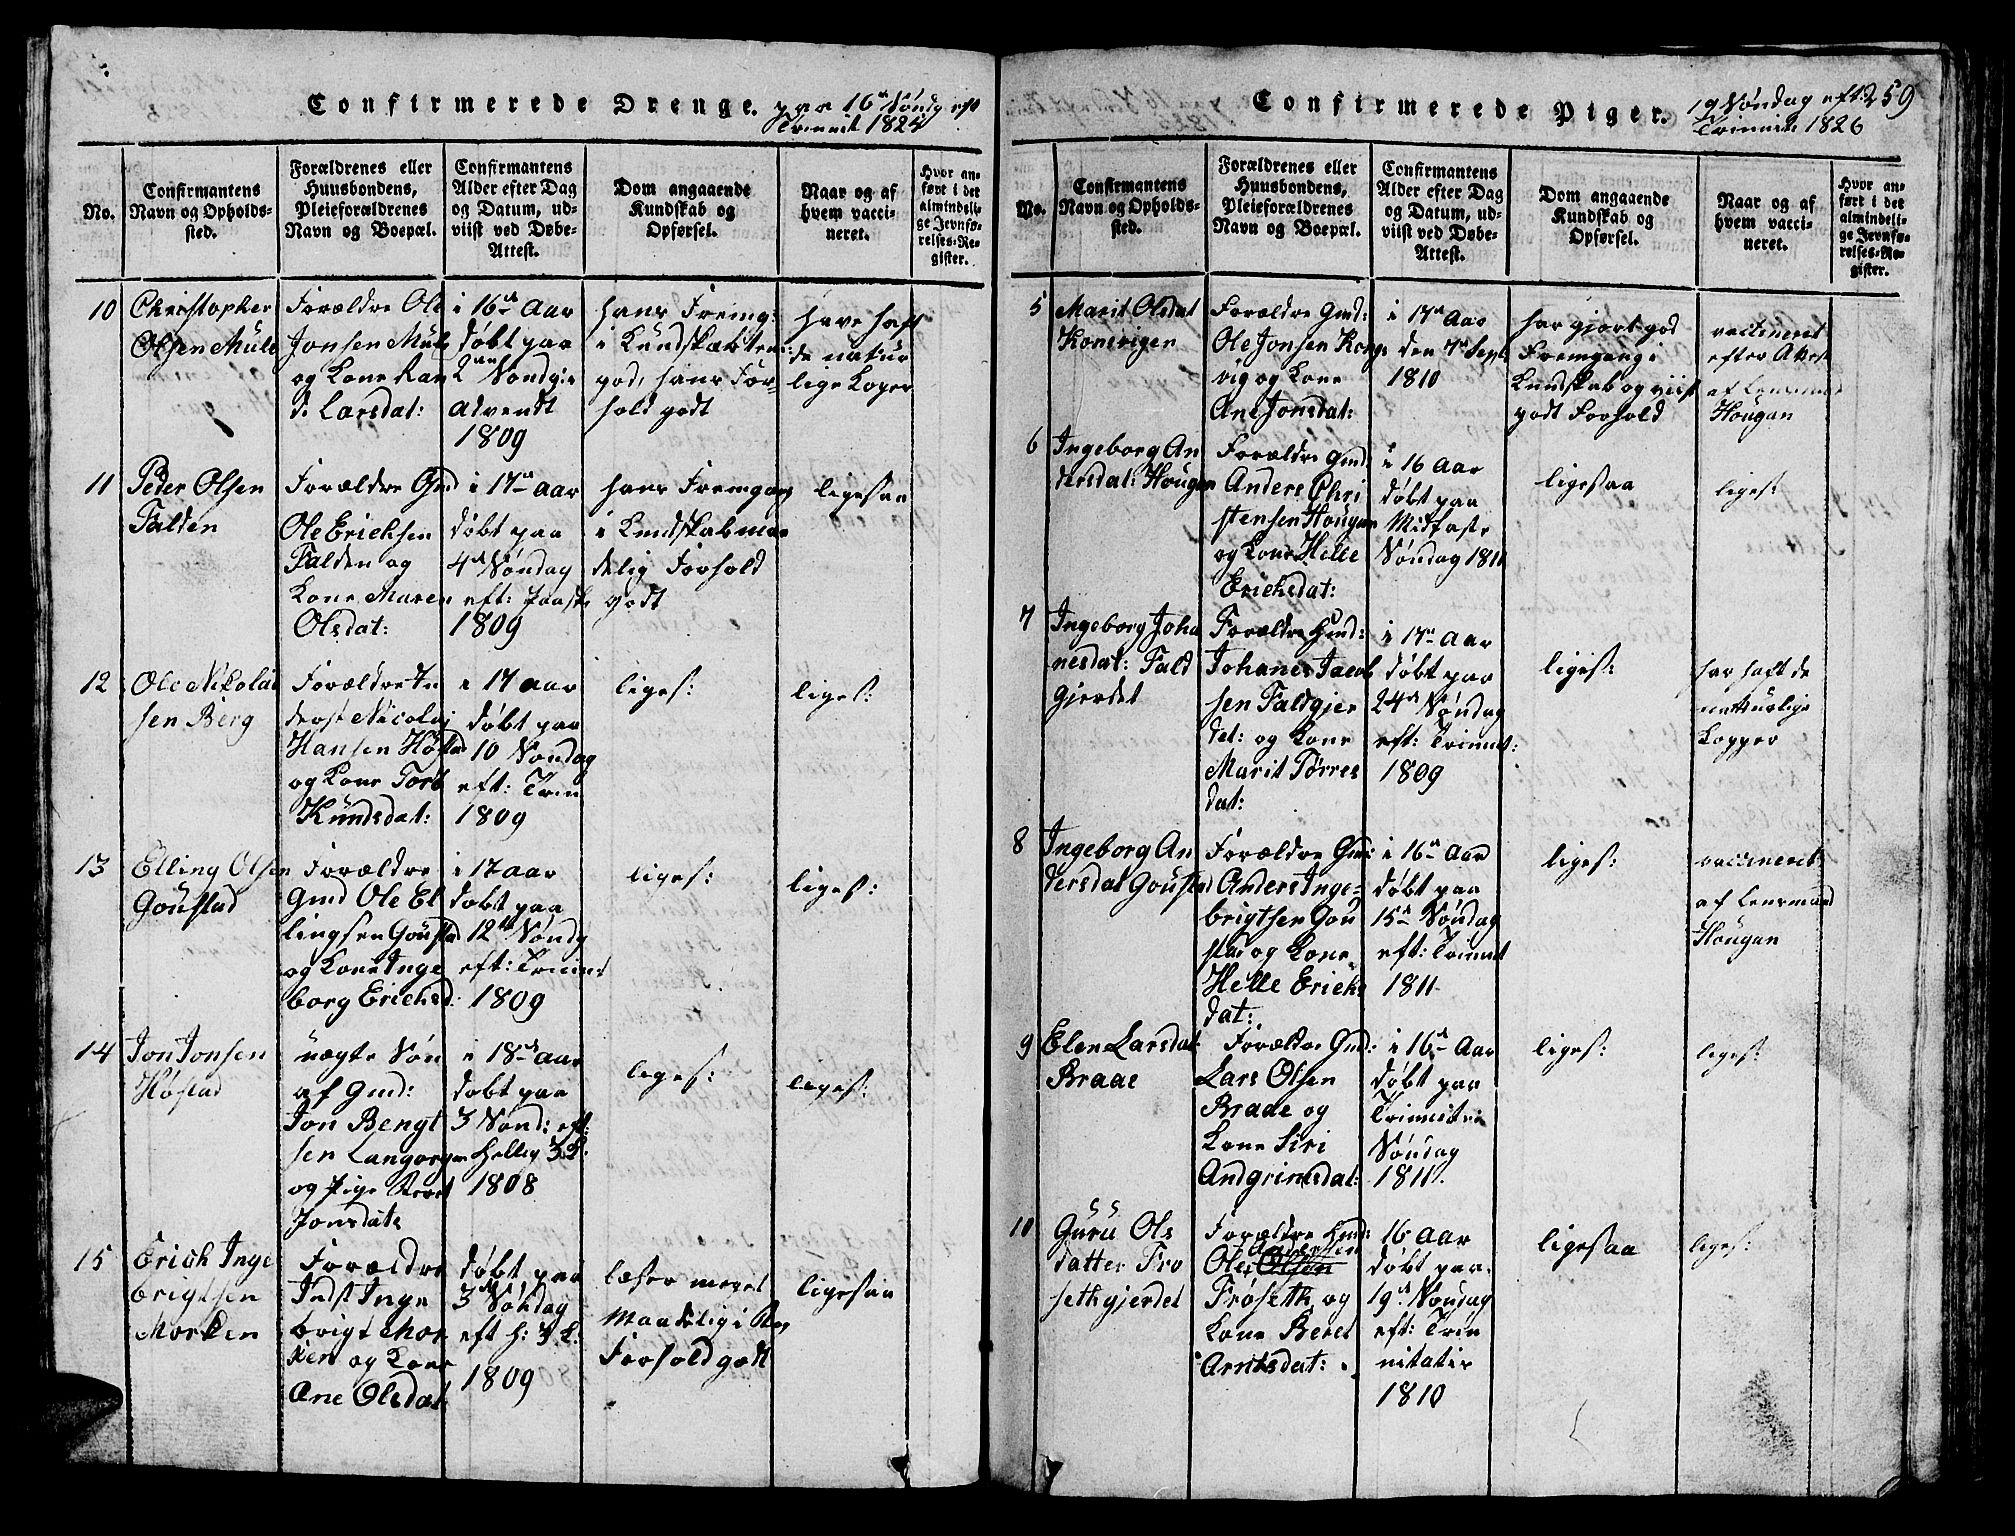 Confirmerede Drenge. paa 16de Søndg eft
Trinnit 1825
No.
Confirmantens
Navn og Opholds-
sted.
Forældrenes eller
Huusbondens,
Pleieforældrenes
Navn og Boepæl.
Confirmantens
Alder efter Dag
og Datum, ud-
viist ved Døbe-
Attest.
Dom angaaende
Kundskab og
Opførsel.
Naar og af
hvem vacci-
neret.
Hvor an-
ført i det
almindeli-
ge Jevnfø-
relses-Re-
gister.
10
Christopher
Olsen Mule
Forældre Ole
Jonsen Mule
og Kone Ran
di Larsdat:
i 16de Aar
døbt paa
2den Søndg i
Advendt
1809
hans Fremg:
i Kundskabten
god, hans For-
hold godt
have haft
de natur
lige Koper
11
Peder Olsen
Falden
Forældre Gmd
Ole Erichsen
Falden og
Kone Maren
Olsdat:
i 17de Aar
døbt paa
4de Søndag
eft: Paaske
1809
hans Fremgang
i Kundskab maa
delig Forhold
godt
ligesaa
12
Ole Nikolai
sen Berg
Forældre In
derst Nicolaj
Hansen Høstad
og Kone Torb
Knudsdat:
i 17 Aar
døbt paa
10 Søndag
eft: Trin
1809
liges:
liges:
13
Elling Olsen
Goustad
Forældre
Gmd Ole El
lingsen Goustad
og Kone Inge
borg Erichsd:
i 17 Aar
døbt paa
12te Søndg
eft: Trinnit
1809
liges:
liges:
14
Jon Jonsen
Høstad
uægte Søn
af Gmd:
Jon Bengt
sen Langørgen
og Pige Beret
Jonsdatr
i 18de Aar
døbt paa
3 Sønd: eft:
Hellig 3 K:
1808
liges:
liges:
15
Erich Inge
brigtsen
Morken
Forældre
Indst Inge
brigt Mor
ken og Kone
Ane Olsdat
døbt paa
3de Søndag
eft h: 3 K:
1809
læser meget
Maadelig i Bog
Forhold godt
ligesaa
Confirmerede Piger. 19 Søndag eft: 259
Trinnit 1826
No.
Confirmantens
Navn og Opholds-
sted.
Forældrenes eller
Huusbondens,
Pleieforældrenes
Navn og Boepæl.
Confirmantens
Alder efter Dag
og Datum, ud-
viist ved Døbe-
Attest.
Dom angaaende
Kundskab og
Opførsel.
Naar og af
hvem vacci-
neret.
Hvor an-
ført i det
almindeli-
ge Jevnfø-
relses-Re-
gister.
5
Marit Olsdat
Konsvigen
Forældre Gmd:
Ole Jonsen Kons
vig og Kone
Ane Jonsdat:
i 17de Aar
den 7de Sept:
1810
har gjort god
Fremgang i
Kundskab og viist
godt Forhold
vaccineret
efter Attest
af Lensmand
Hougan
6
Ingeborg An
dersdat: Hougan
Forældre Gmd:
Anders Chri
stensen Hougan
og Kone Helle
Erichsdat:
i 16 Aar
døbt paa
Midfaste
Søndag 1811
ligesaa
liges:
7
Ingeborg Joha
nesdat: Fald
gjerdet
Forældre Hmd:
Johanes Jacob
sen Faldgjer
det: og Kone
Marit Tørres
dat:
i 17de Aar
døbt paa
24de Søndag
eft: Trinnit:
1809
liges:
har haft de
naturlige
Kopper
8
Ingeborg An
dersdat Goustad
Forældre Gmd:
Anders Inge-
brigtsen Gou
stad og Kone
Helle Erichs
dat:
i 16de Aar
døbt paa
15de Søndag
eft: Trinnit
1811
liges:
vaccineret
af Lensmand
Hougan
9
Elen Larsdat:
Braae
Forældre Gmd:
Lars Olsen
Braae og
Kone Siri
Andgrimsdat:
i 16de Aar
døbt paa
Trinniti
Søndag
1811.
liges:
liges:
10
Guru Ols
datter Frø
sethgjerdet
Forældre Hmd:
Andersen
Ole Olsen
Frøseth og
Kone Beret
Arntsdat:
16 Aar
døbt paa
19de Søndag
eft: Trin
nitatis
1810
ligesaa
liges: